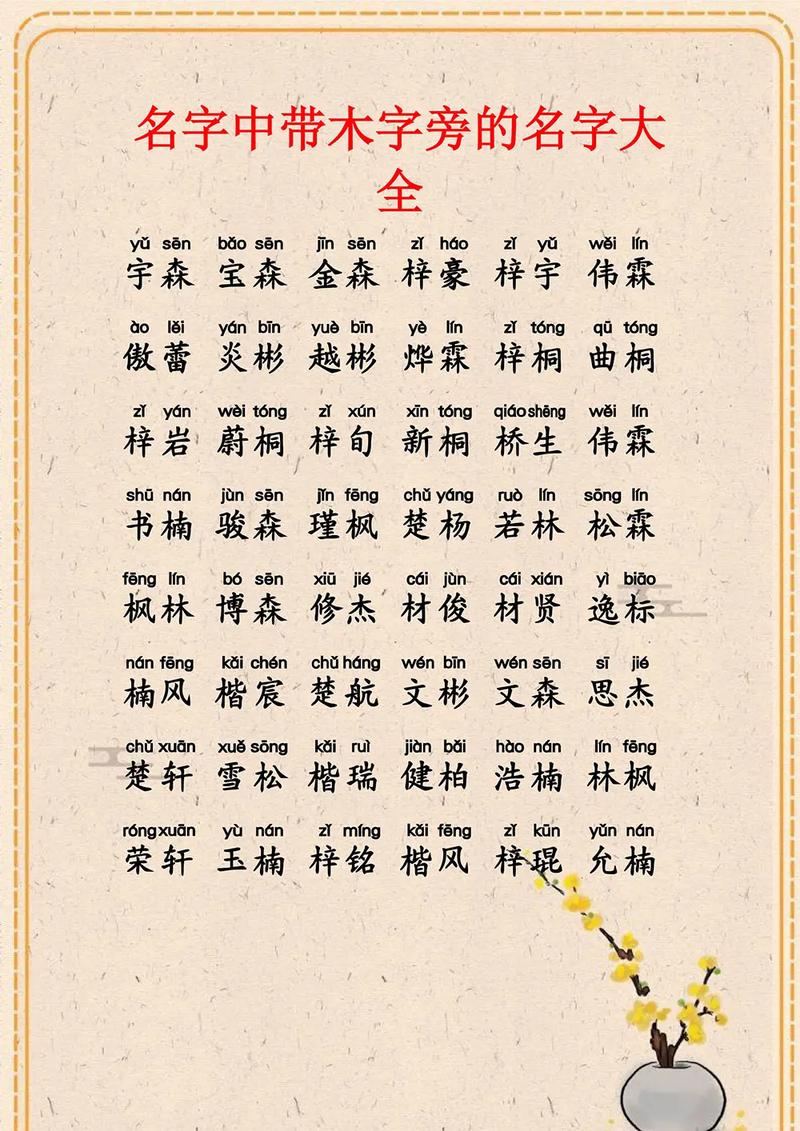 名字中带木字旁的名字大
全
yǔ sēn bǎo sēn jīn sēn zǐ háo zǐ yǔ wěi lín
宇森 宝森 金森 梓豪 梓宇 伟霖
ào lěi yán bīn yuè bīn yè lín zǐ tóng qū tóng
傲蕾 炎彬 越彬 烨霖 梓桐 曲桐
zǐ yán wèi tóng zǐ xún xīn tóng qiáo shēng wěi lín
梓岩 蔚桐 梓旬 新桐 桥生 伟霖
shū nán jùn sēn jǐn fēng chǔ yáng ruò lín sōng lín
书楠 骏森 瑾枫 楚杨 若林 松霖
fēng lín bó sēn xiū jié cái jùn cái xián yì biāo
枫林 博森 修杰 材俊 材贤 逸标
nán fēng kǎi chén chǔ háng wén bīn wén sēn sī jié
楠风 楷宸 楚航 文彬 文森 思杰
chǔ xuān xuě sōng kǎi ruì jiàn bǎi hào nán lín fēng
楚轩 雪松 楷瑞 健柏 浩楠 林枫
róng xuān yù nán zǐ míng kǎi fēng zǐ kūn yǔn nán
荣轩 玉楠 梓铭 楷风 梓琨 允楠